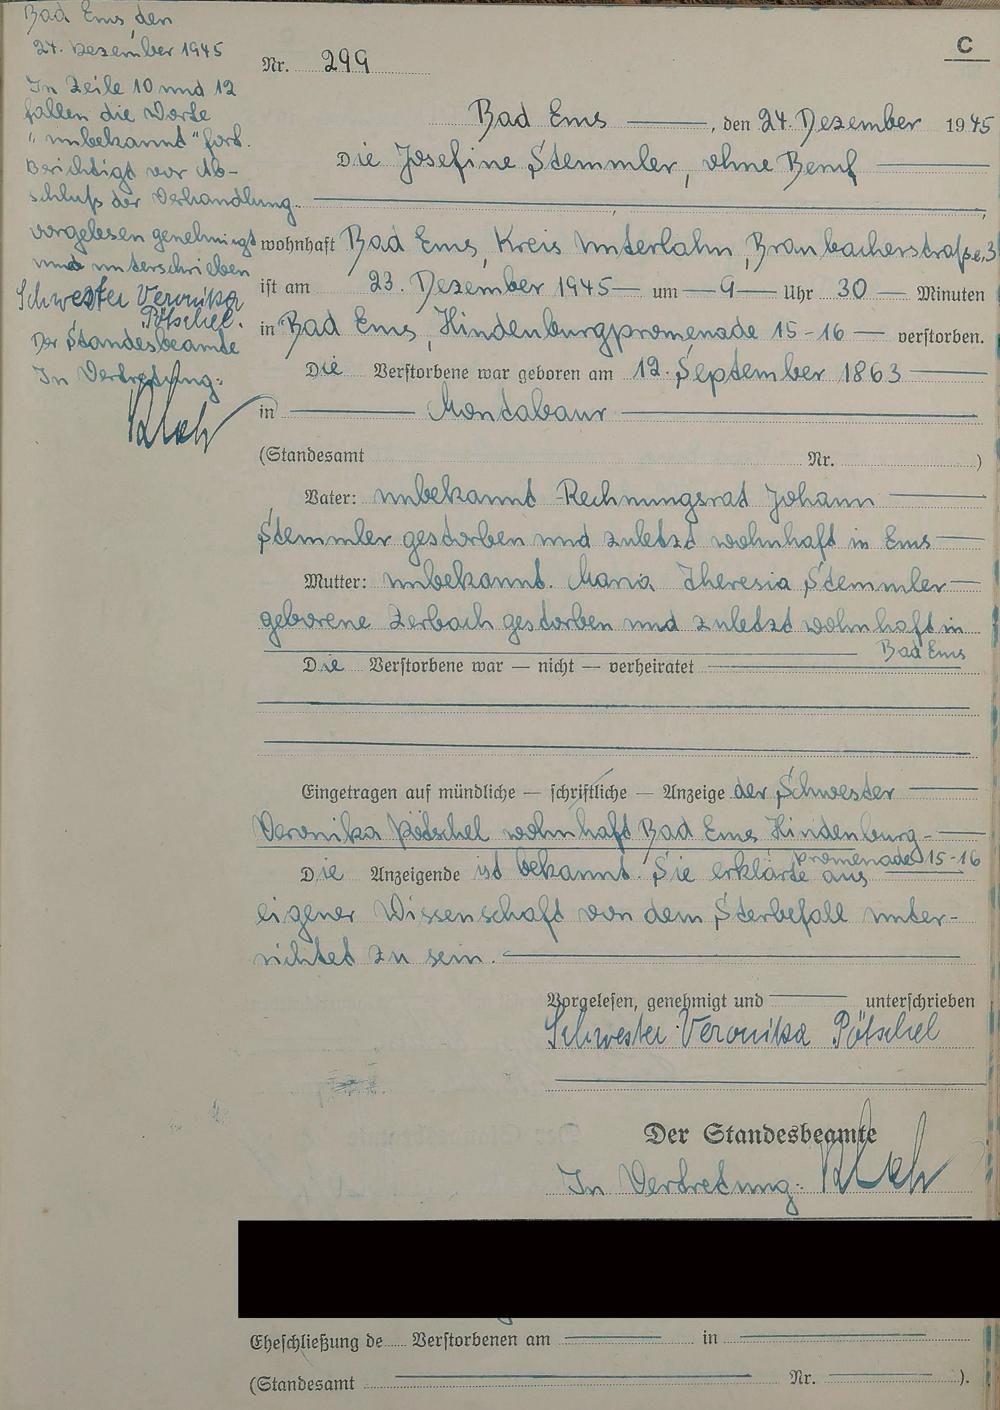 Bad Ems, den
24. Dezember 1945
In Zeile 10 und 12
fallen die Worte
"unbekannt" fort.
Berichtigt vor Ab-
schluß der Verhandlung.
vorgelesen genehmigt
und unterschrieben
Schwester Veronika
Pötschel.
Der Standesbeamte
In Vertretung:
C
Nr. 299
Bad Ems, den 24. Dezember 1945
Die Josefine Stemmler, ohne Beruf
wohnhaft Bad Ems, Kreis Unterlahn, Braubacherstraße 3
ist am 23. Dezember 1945 um 9 Uhr 30 Minuten
in Bad Ems, Hindenburgpromenade 15-16 verstorben.
Die Verstorbene war geboren am 12. September 1863
in Montabaur
(Standesamt Nr. )
Vater: unbekannt Rechnungsrat Johann
Stemmler gestorben und zuletzt wohnhaft in Ems
Mutter: unbekannt. Maria Theresia Stemmler
geborene Zerbach gestorben und zuletzt wohnhaft in
Bad Ems
Die Verstorbene war — nicht — verheiratet
Eingetragen auf mündliche — schriftliche — Anzeige der Schwester
Veronika Pötschel wohnhaft Bad Ems Hindenburg-
promenade 15-16
Die Anzeigende ist bekannt. Sie erklärte aus
eigener Wissenschaft von dem Sterbefall unter-
richtet zu sein.
Vorgelesen, genehmigt und unterschrieben
Schwester Veronika Pötschel
Der Standesbeamte
In Vertretung:
Eheschließung de Verstorbenen am in
(Standesamt Nr. ).